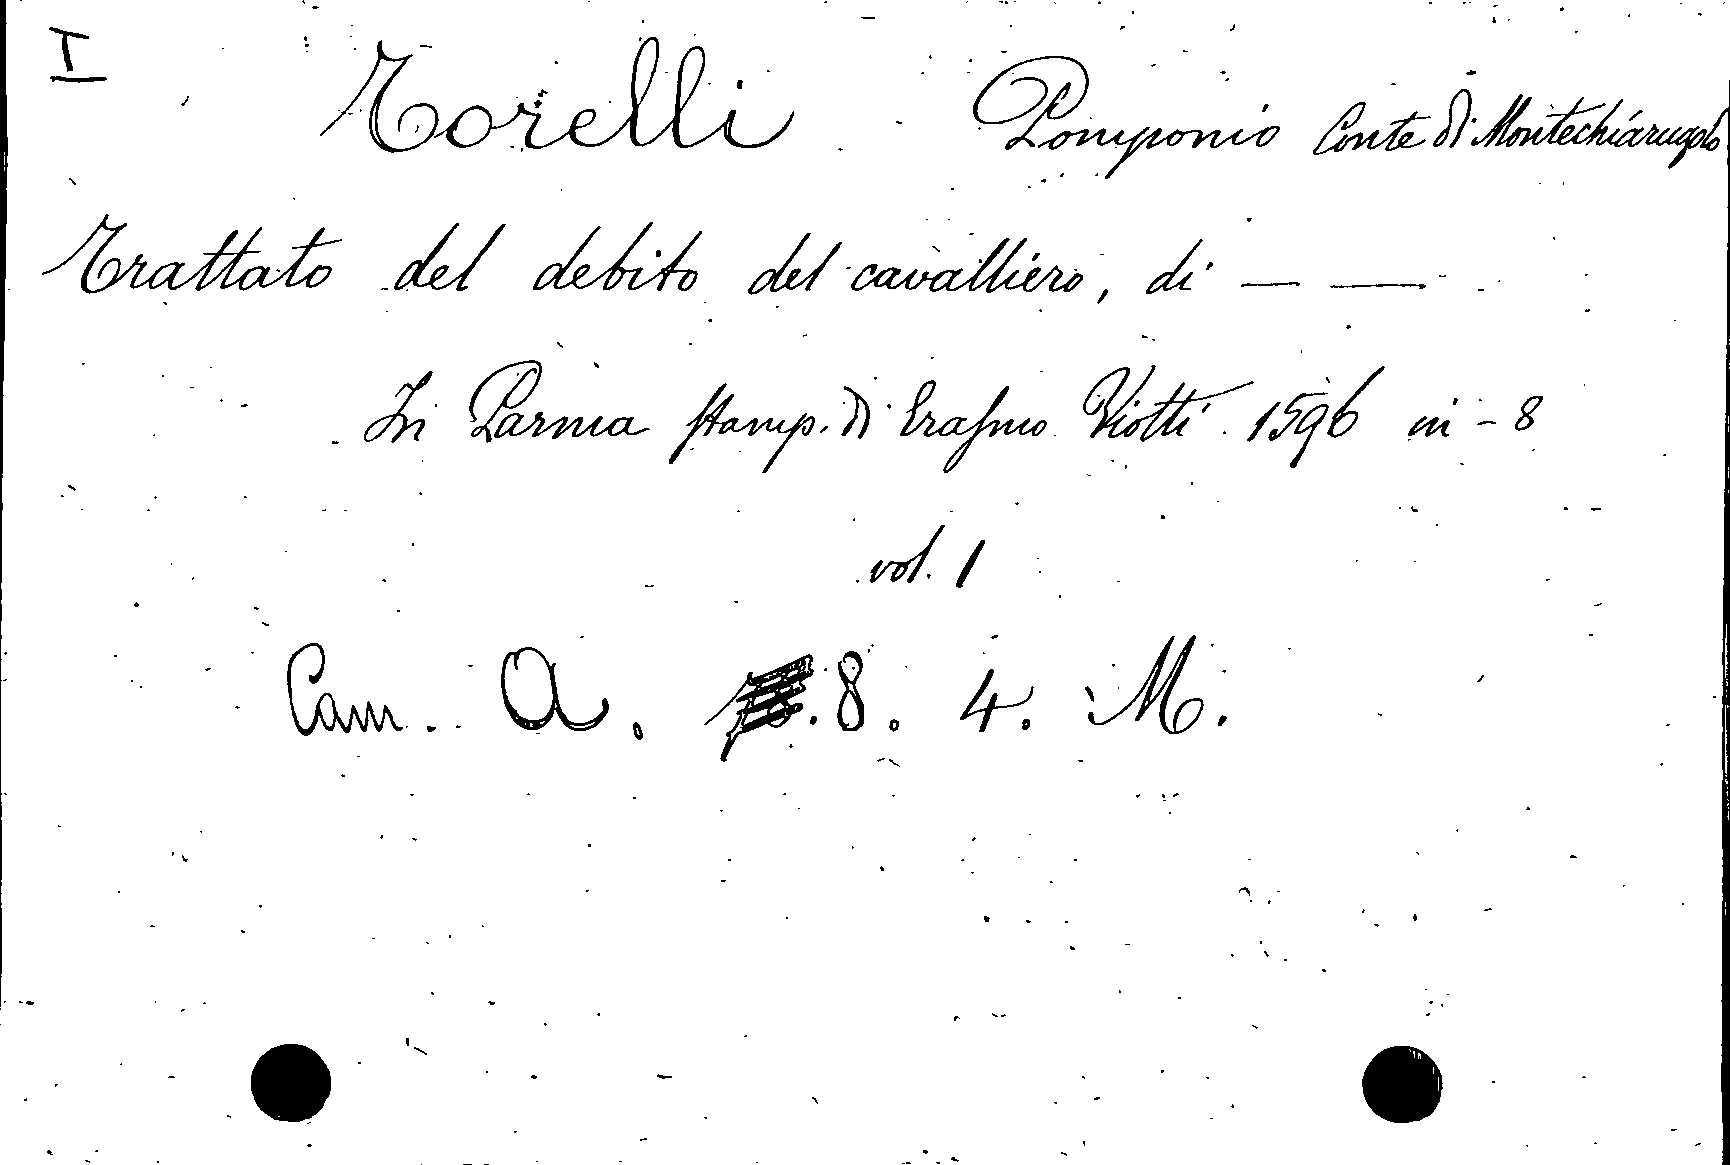 I
Torelli Pomponio Conte di Montechiarugolo
Trattato del debito del cavalliero, di — —
In Parma stamp. di Erasmo Viotti 1596 in - 8
vol. 1
Cam. A. .8. 4. M.